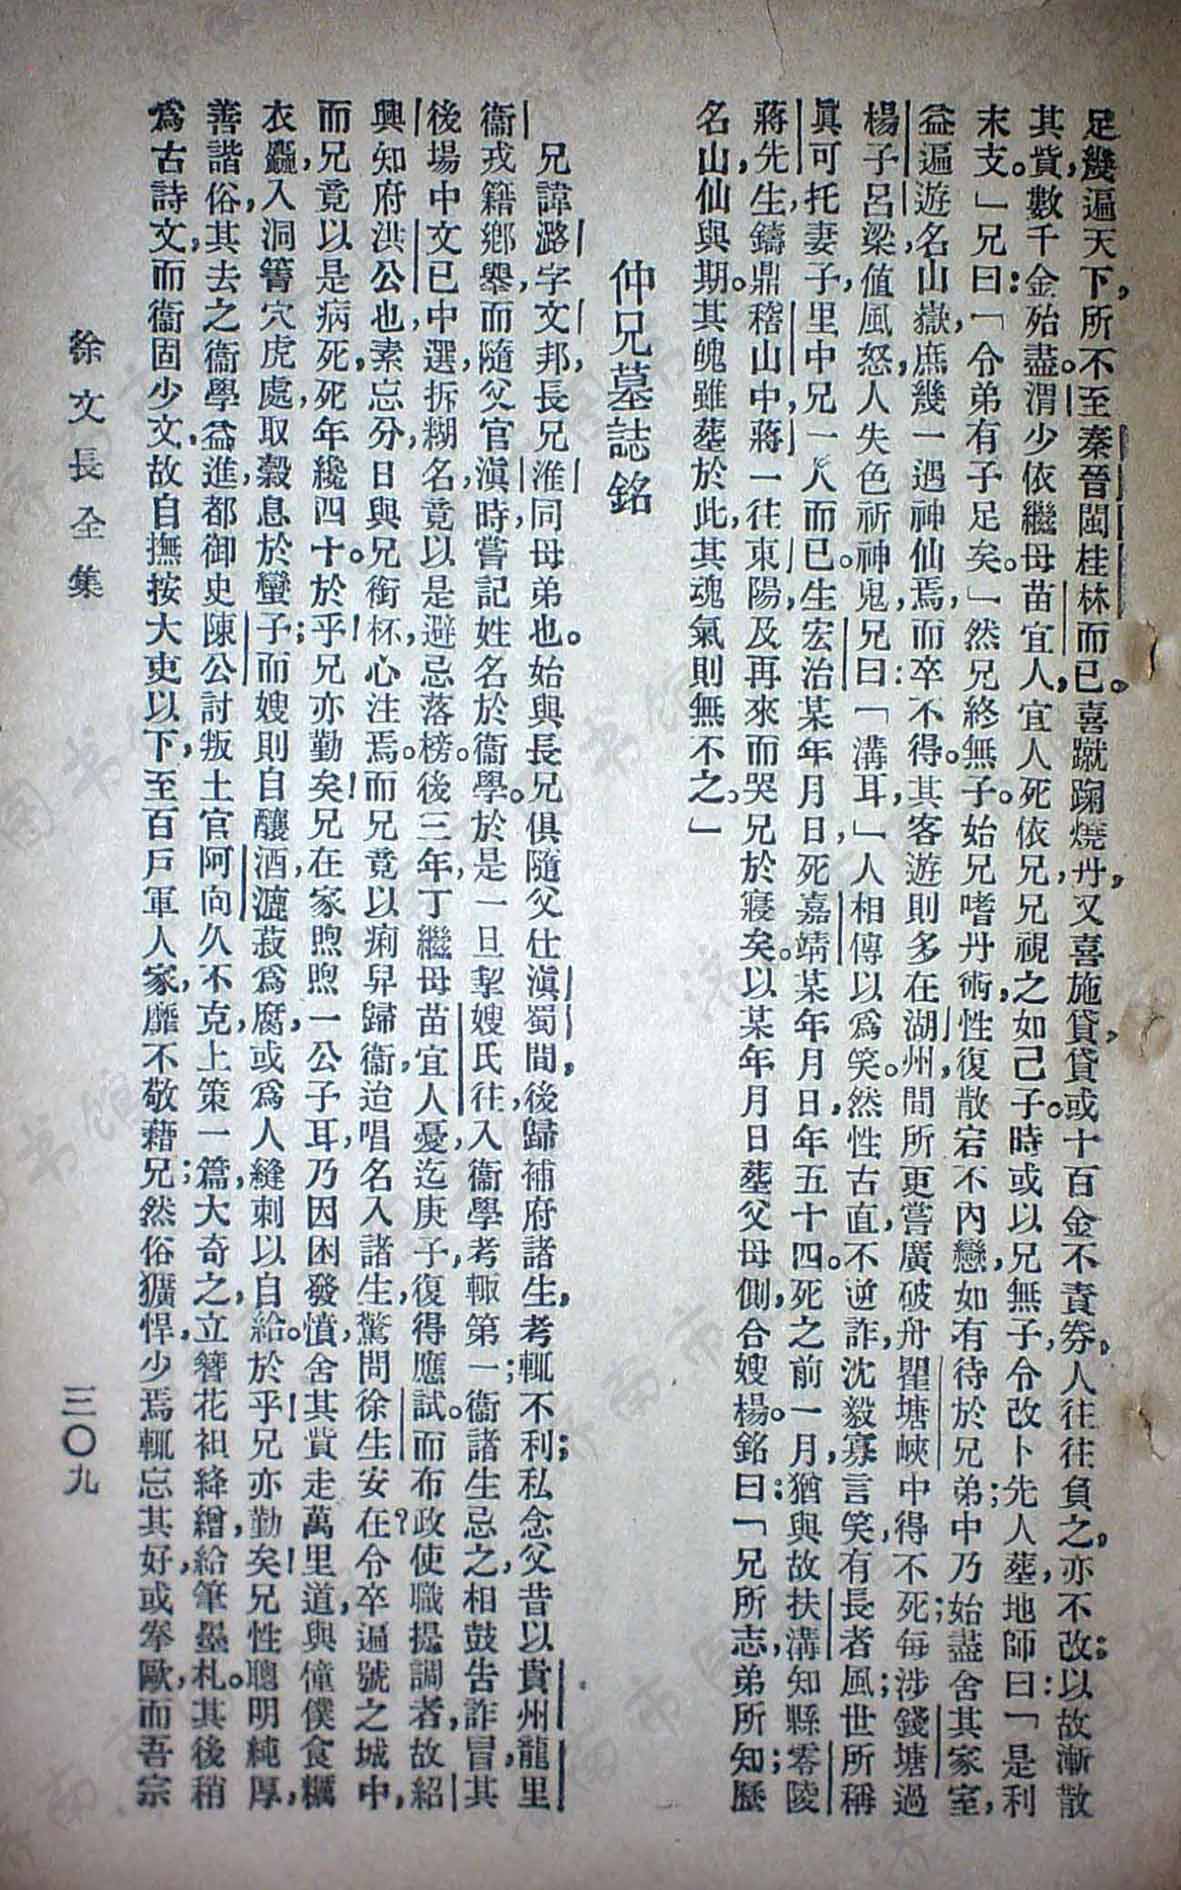 足幾遍天下，所不至秦晉閩桂林而已。喜蹴踘燒丹，又喜施貸，貸或十百金不責券，人往往負之，亦不改；以故漸散
其貲數千金殆盡。渭少依繼母苗宜人，宜人死依兄，兄視之如己子。時或以兄無子，令改卜先人葬地，師曰：「是利
末支。」兄曰：「令弟有子足矣。」然兄終無子。始兄嗜丹術，性復散宕不內戀，如有待於兄弟；中乃始盡舍其家室，
益遍遊名山嶽，庶幾一遇神仙焉，而卒不得。其客遊則多在湖州間，所更嘗廣，破舟瞿塘峽中得不死；每涉錢塘過
楊子呂梁，值風怒，人失色祈神鬼，兄曰：「溝耳，」人相傳以爲笑。然性古直，不逆詐，沈毅寡言笑，有長者風；世所稱
眞可托妻子，里中兄一人而已。生宏治某年月日，死嘉靖某年月日，年五十四。死之前一月，猶與故扶溝知縣零陵
蔣先生鑄鼎稽山中，蔣一往東陽，及再來而哭兄於寢矣。以某年月日葬父母側，合嫂楊。銘曰：「兄所志，弟所知；歷
名山，仙與期。其魄雖葬於此，其魂氣則無不之。」
仲兄墓誌銘
兄諱潞，字文邦，長兄淮同母弟也。始與長兄俱隨父仕滇蜀間，後歸補府諸生，考輒不利；私念父昔以貴州龍里
衞戎籍鄉舉，而隨父官滇時，嘗記姓名於衞學。於是一旦挈嫂氏往，入衞學，考輒第一。衞諸生忌之，相鼓告詐冒，其
後場中文已中選，拆糊名，竟以是避忌落榜。後三年，丁繼母苗宜人憂，迄庚子，復得應試。而布政使職提調者，故紹
興知府洪公也，素忘分日與兄銜杯，心注焉。而兄竟以痢舁歸衞，迨唱名入諸生，驚問徐生安在？令卒遍號之城中，
而兄竟以是病死，死年纔四十。於乎！兄亦勤矣！兄在家煦煦一公子耳，乃因困發憤，舍其貲走萬里道，與僮僕食糲
衣麤，入洞箐穴虎處，取穀息於蠻子；而嫂則自釀酒，漉菽爲腐，或爲人縫刺以自給。於乎！兄亦勤矣！兄性聰明純厚，
善諧俗，其去之衞學益進，都御史陳公討叛土官阿向久不克，上策一篇，大奇之，立簪花袒絳繒，給筆墨札。其後稍
爲古詩文，而衞固少文，故自撫按大吏以下，至百戶軍人家，靡不敬藉兄；然俗獷悍，少焉輒忘其好，或拳歐，而吾宗
徐文長全集
三〇九